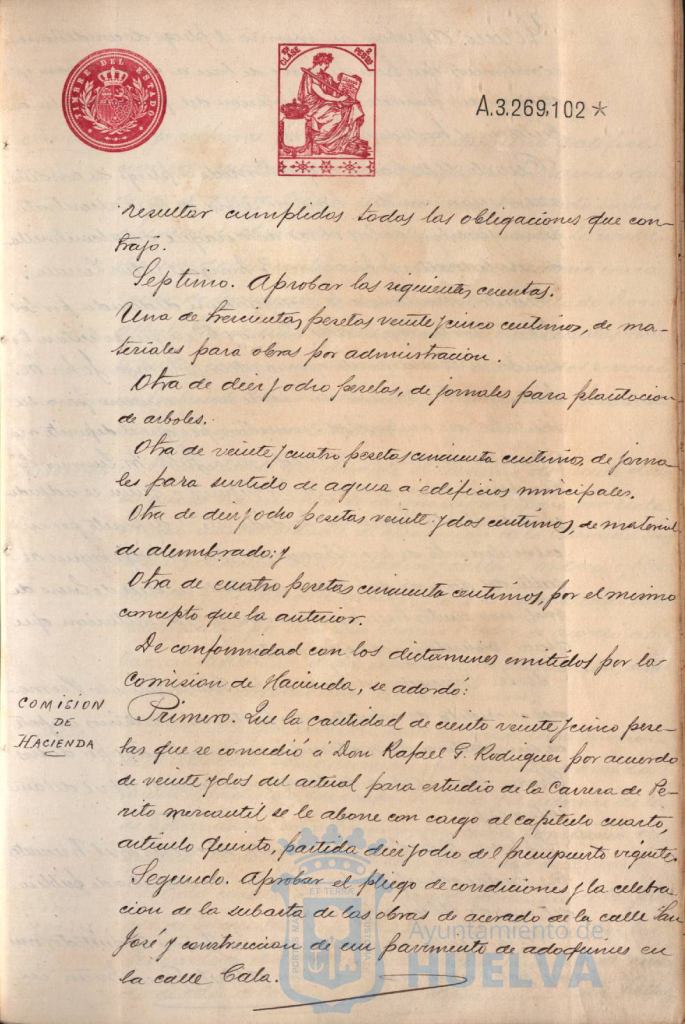 TIMBRE DEL ESTADO
8ª CLASE 2 PESETAS
A.3.269,102 *
resultar cumplidos todas las obligaciones que con-
trajo.
Septimo. Aprobar las siguientes cuentas.
Una de trescientas pesetas veinte y cinco centimos, de ma-
teriales para obras por administracion.
Otra de diez y ocho pesetas, de jornales para plantacion
de arboles.
Otra de veinte y cuatro pesetas cincuenta centimos, de jorna-
les para surtido de agua a edificios municipales.
Otra de diez y ocho pesetas veinte y dos centimos, de material
de alumbrado; y
Otra de cuatro pesetas cincuenta centimos, por el mismo
concepto que la anterior.
De conformidad con los dictamenes emitidos por la
Comision de Hacienda, se acordó:
COMISION
DE
HACIENDA
Primero. Que la cantidad de ciento veinte y cinco pese-
tas que se concedió á Don Rafael G. Rodriguez por acuerdo
de veinte y dos del actual para estudio de la Carrera de Pe-
rito mercantil se le abone con cargo al capitulo cuarto,
articulo quinto, partida diez y ocho del presupuesto vigente.
Segundo. Aprobar el pliego de condiciones y la celebra-
cion de la subasta de las obras de acerado de la calle San
José y construccion de un pavimento de adoquines en
la calle Cala.
Ayuntamiento de
HUELVA